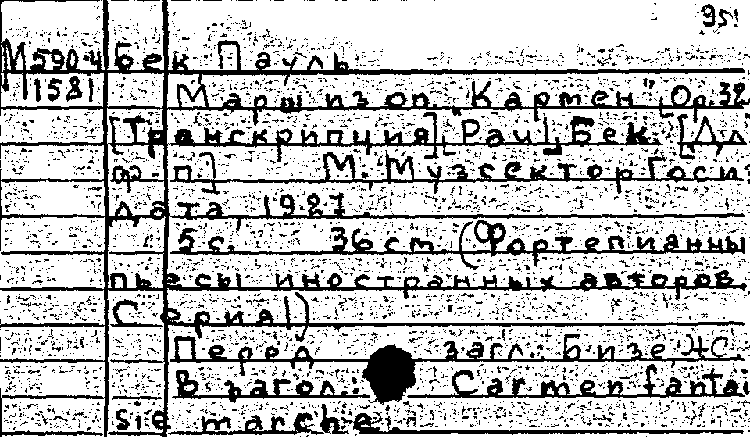 95!
М590-4 Бек, Пауль
1581
Марш из оп. "Кармен", Op. 32
[Транскрипция], [Paul], Бек. [Дл
ф.-п.] М., Музсектор Госи
дата, 1927.
5 с. 36 cm (Фортепианны
пьесы иностранных авторов.
Серия I).
Перед загл.: Бизе Ж.
В загол.: Carmen fantai
sie marche.